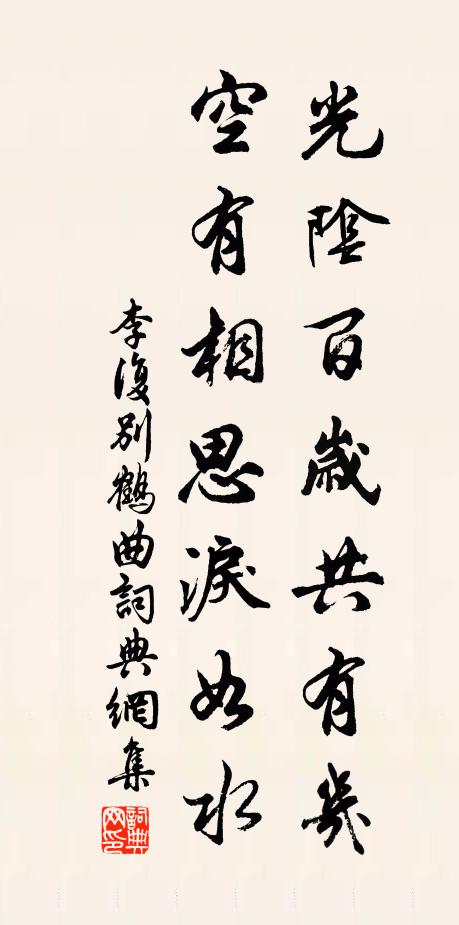 光陰百歲共有幾
空有相思淚如水
李復別鶴曲詞典網集
詞典网印